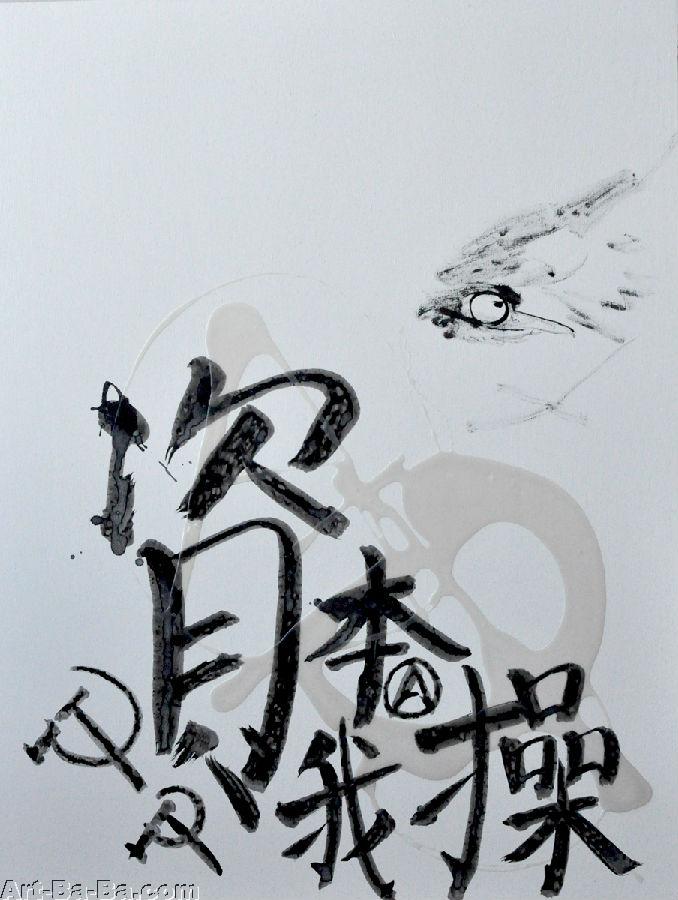 資本
Ⓐ
我操
Art-Ba-Ba.com